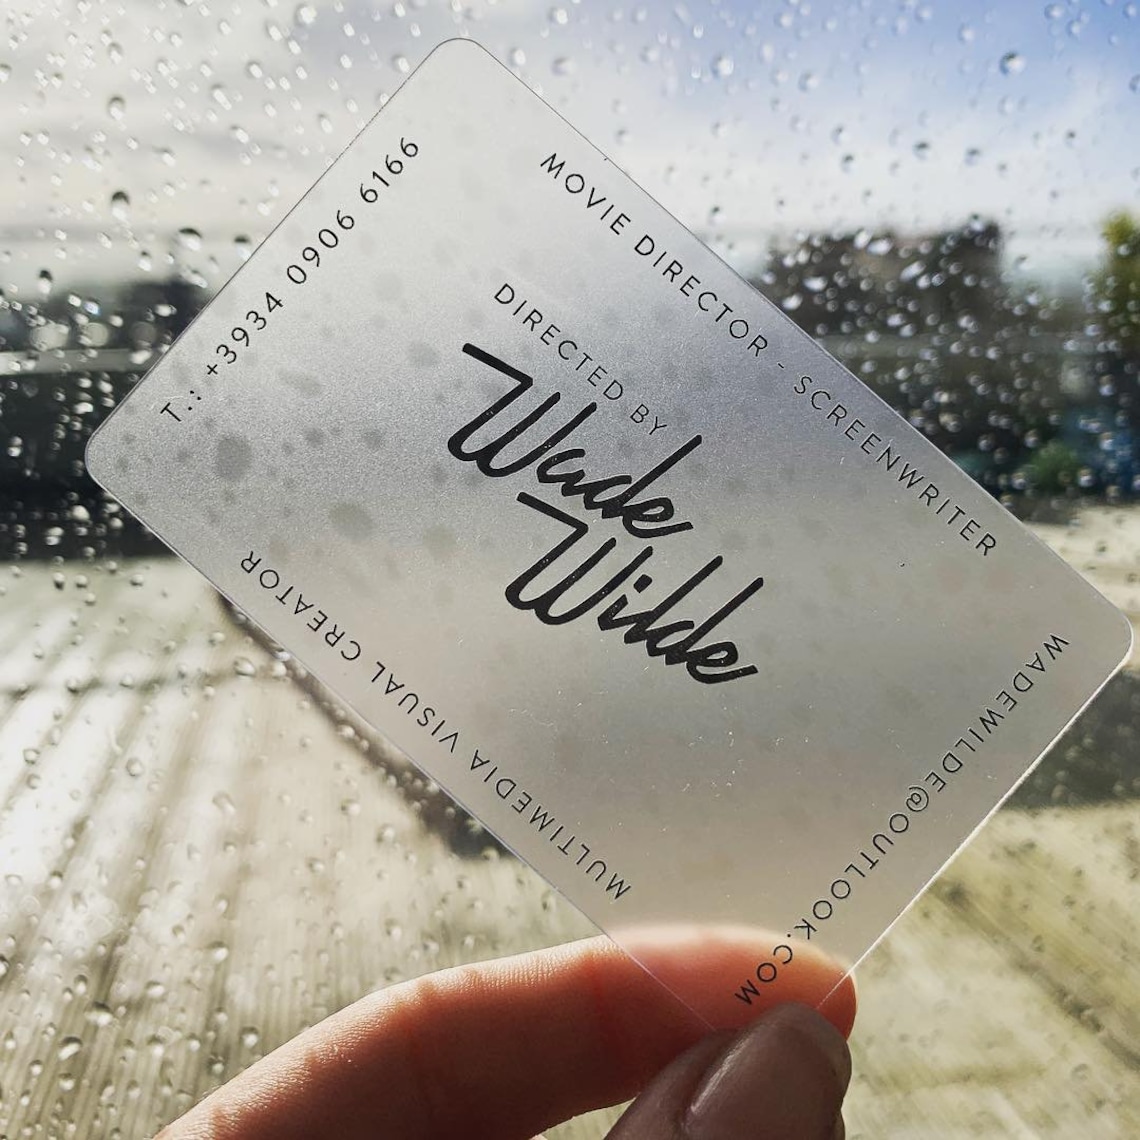 MOVIE DIRECTOR - SCREENWRITER
T.: +3934 0906 6166
DIRECTED BY
Wade
Wilde
WADEWILDE@OUTLOOK.COM
MULTIMEDIA VISUAL CREATOR